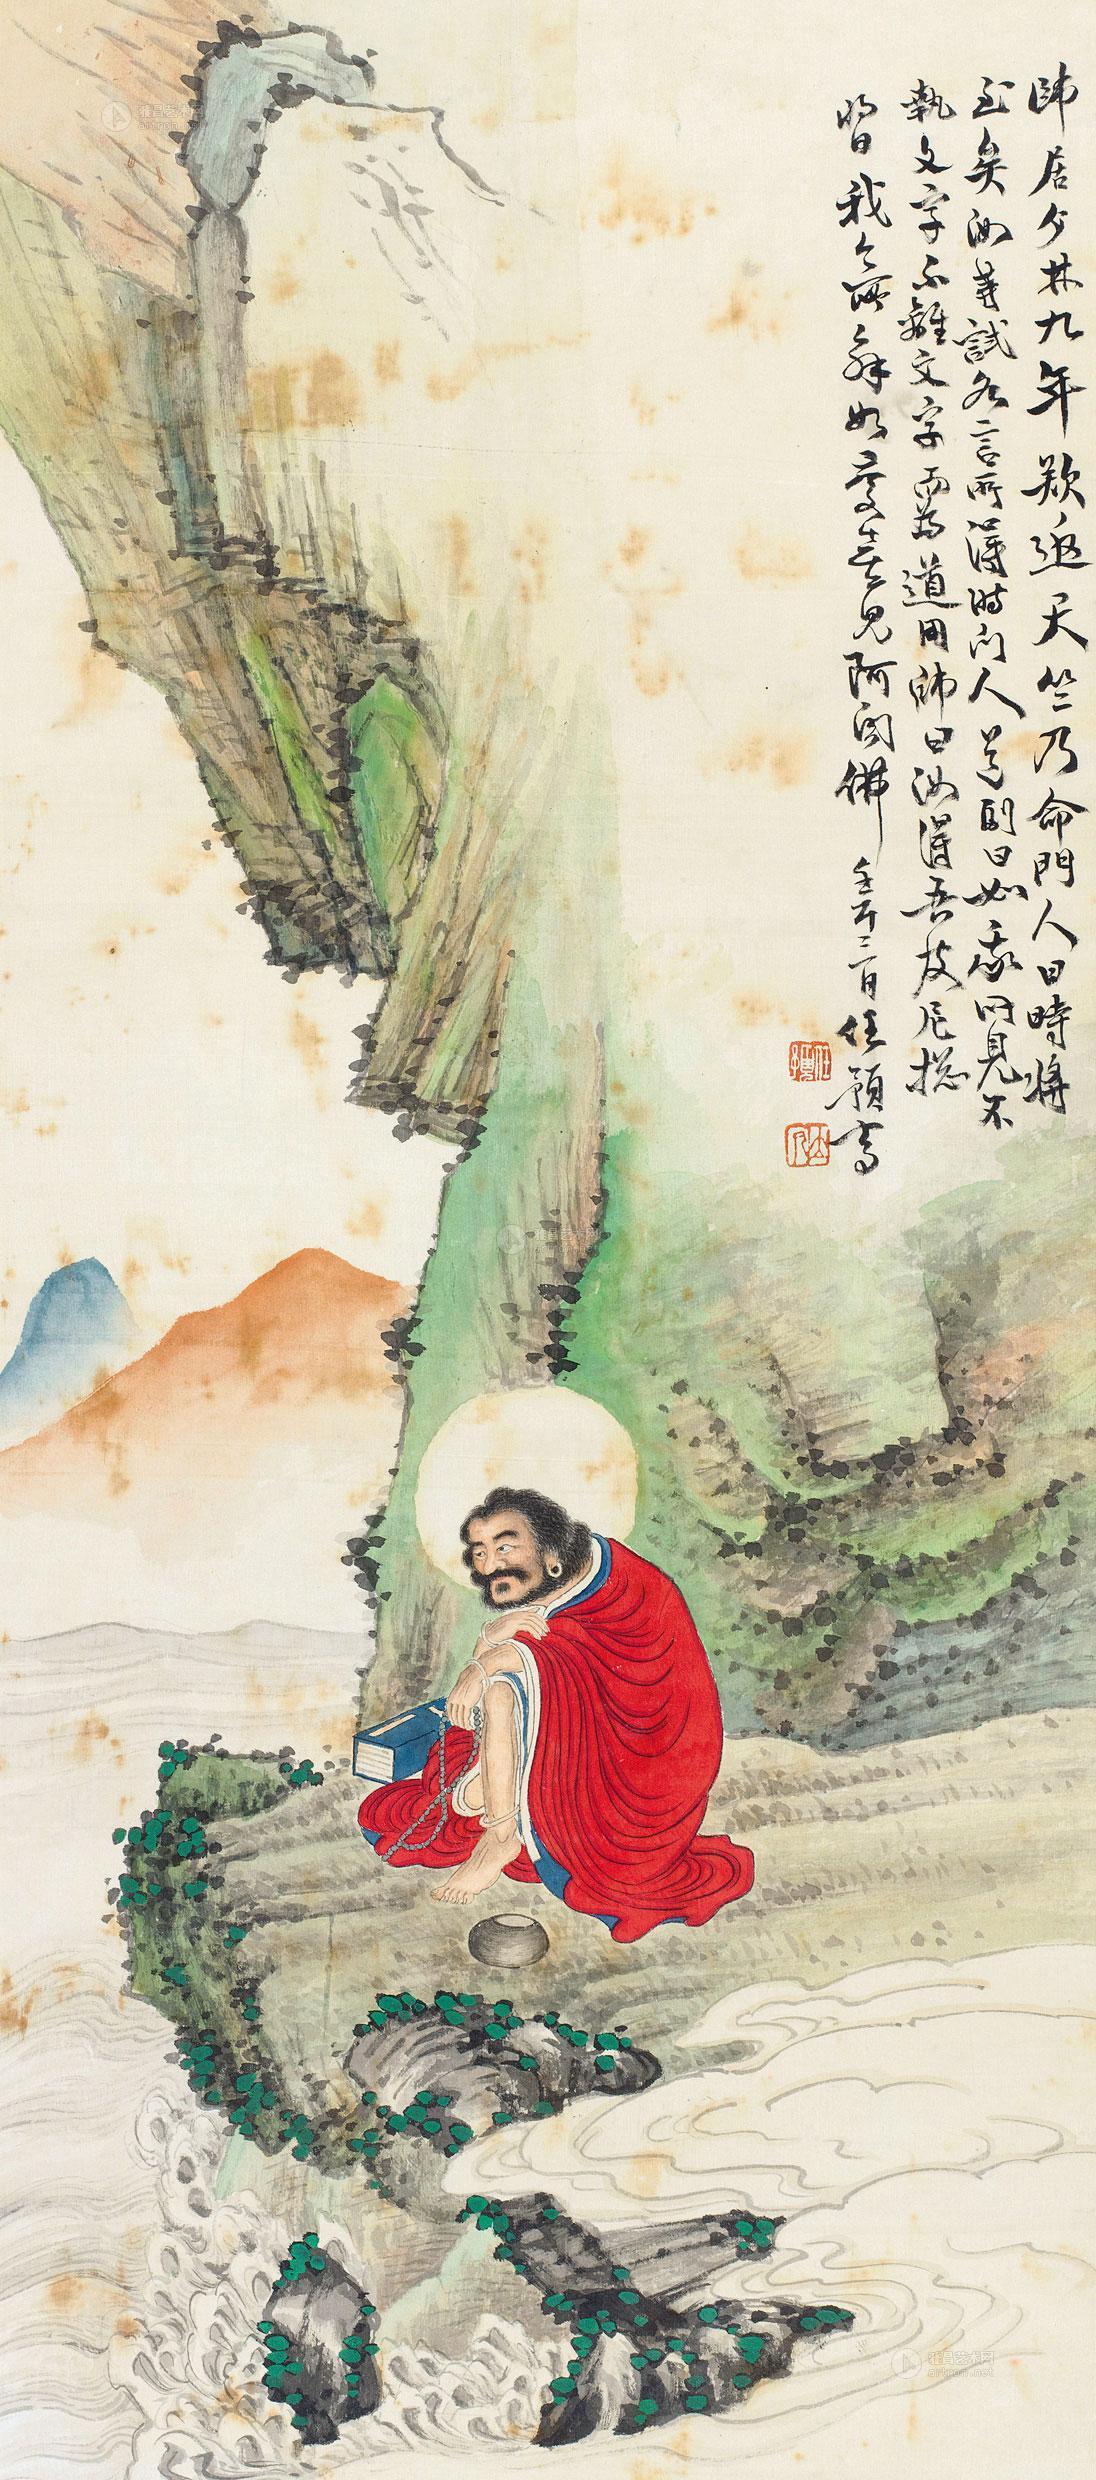 師居少林九年欲返天竺乃命門人曰時將
至矣汝等試各言所得時門人道副曰如我所見不
執文字不離文字而為道用師曰汝得吾皮尼總
持曰我今所解如慶喜見阿閦佛 二月任預寫
雅昌艺术网
artron.net